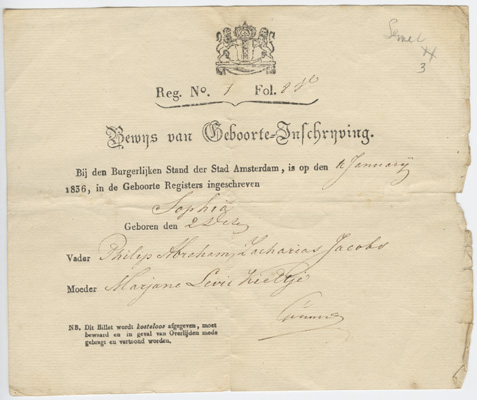 3
Reg. No. 1 Fol.
Bewys van Geboorte-Inschryving.
Bij den Burgerlijken Stand der Stad Amsterdam, is op den January
1836, in de Geboorte Registers ingeschreven
Sophia
Geboren den 2
Vader Philip Abraham Zacharias Jacobs
Moeder Marjane Levie
NB. Dit Billet wordt kosteloos afgegeven, moet
bewaard en in geval van Overlijden mede
gebragt en vertoond worden.